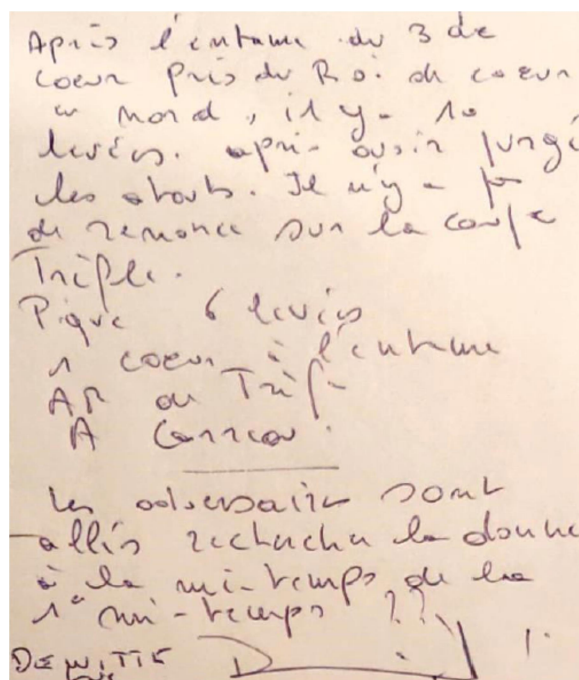 Après l'entame du 3 de
coeur pris du Roi de coeur
en nord, il y a 10
levées. après avoir purgé
les atouts. Il n'y a pas
de renonce sur la coupe
Trèfle.
Pique 6 levées
1 coeur à l'entame
AR de Trèfle
A Carreau.
Les adversaires sont
allés rechercher la donne
à la mi-temps de la
1° mi-temps ??